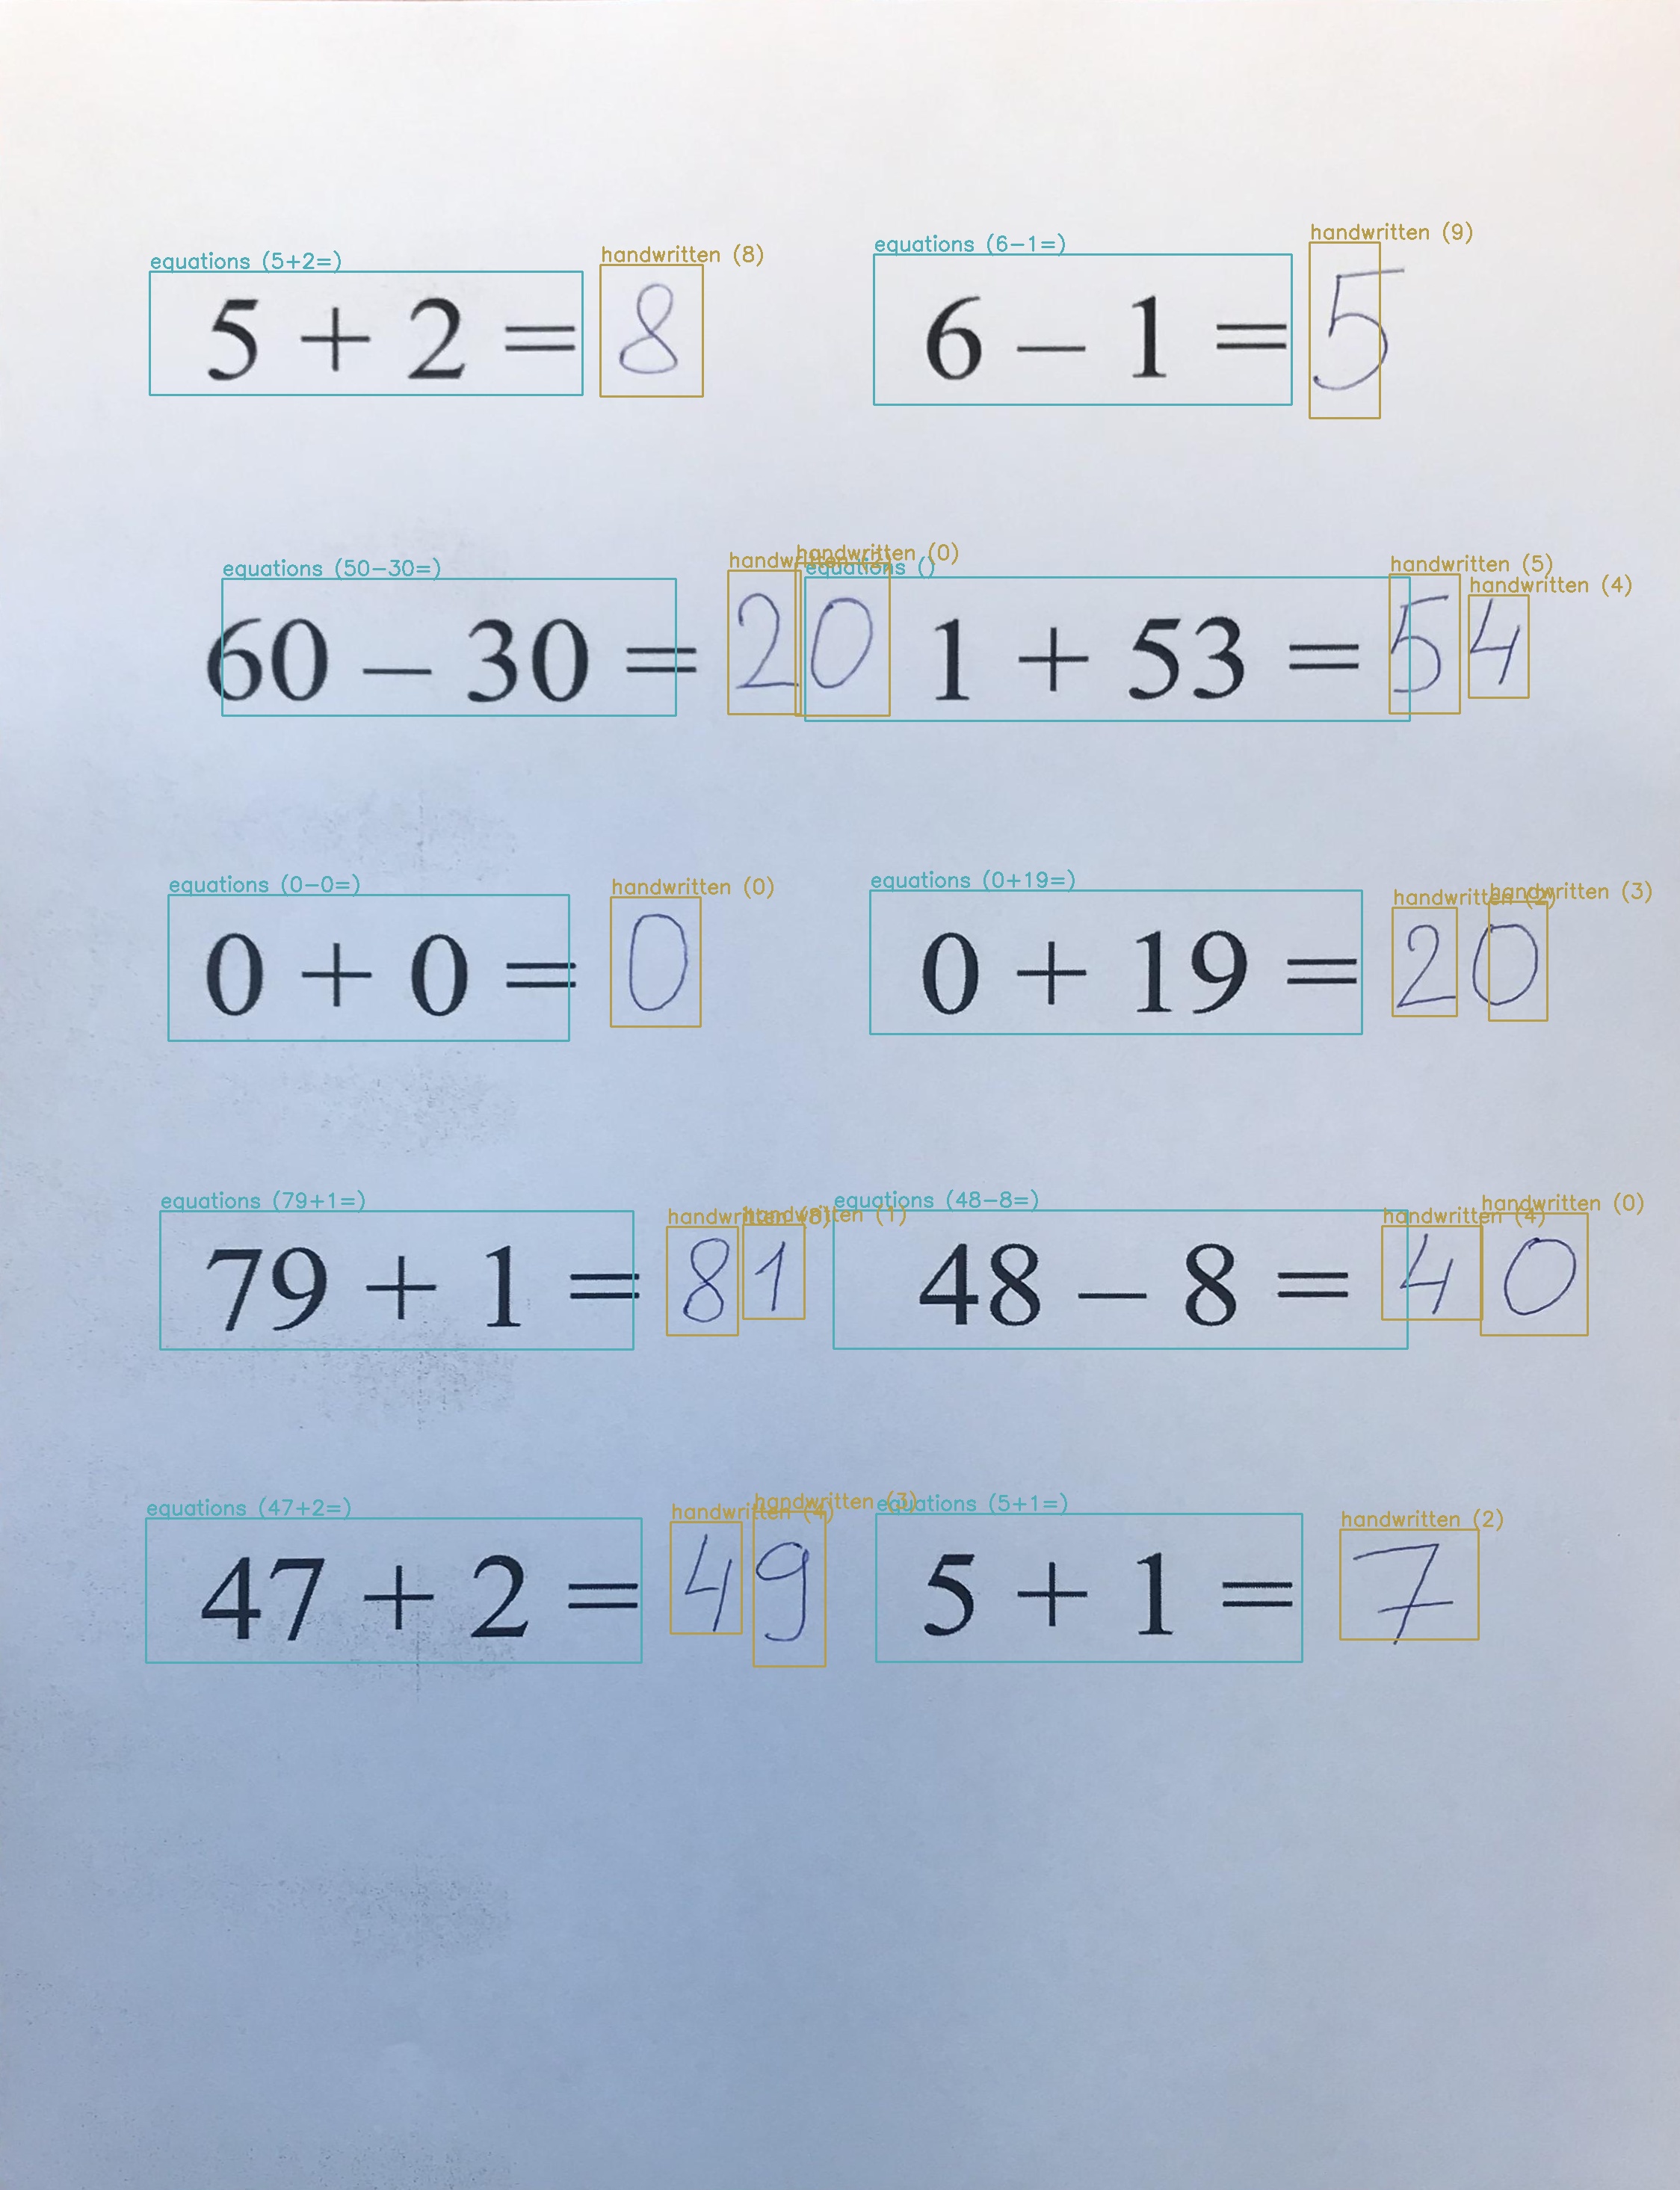 equations (5+2=) handwritten (8) equations (6-1=) handwritten (9)
5 + 2 = 8 6 – 1 = 5
equations (50-30=) handwritten (2) handwritten (0) equations () handwritten (5) handwritten (4)
60 – 30 = 20 1 + 53 = 54
equations (0-0=) handwritten (0) equations (0+19=) handwritten (2) handwritten (3)
0 + 0 = 0 0 + 19 = 20
equations (79+1=) handwritten (8) handwritten (1) equations (48-8=) handwritten (4) handwritten (0)
79 + 1 = 81 48 – 8 = 40
equations (47+2=) handwritten (4) handwritten (3) equations (5+1=) handwritten (2)
47 + 2 = 49 5 + 1 = 7